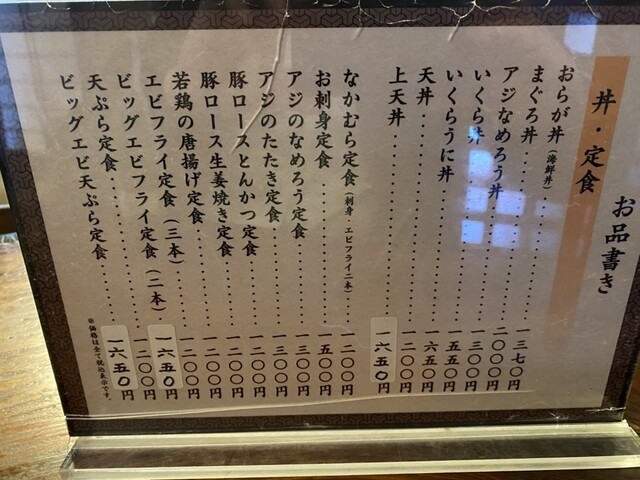 お品書き
丼・定食
おらが丼（海鮮丼）……一三七〇円
まぐろ丼……二〇〇〇円
アジなめろう丼……一三〇〇円
いくら丼……一五五〇円
いくらうに丼……一六五〇円
天丼……一二〇〇円
上天丼……一六五〇円
なかむら定食（刺身 エビフライ二本）……一二〇〇円
お刺身定食……一五〇〇円
アジのなめろう定食……一三〇〇円
アジのたたき定食……一三〇〇円
豚ロースとんかつ定食……一二〇〇円
豚ロース生姜焼き定食……一二〇〇円
若鶏の唐揚げ定食……一二〇〇円
エビフライ定食（三本）……一二〇〇円
ビッグエビフライ定食（二本）……一六五〇円
天ぷら定食……一二〇〇円
ビッグエビ天ぷら定食……一六五〇円
※価格は全て税込表示です。